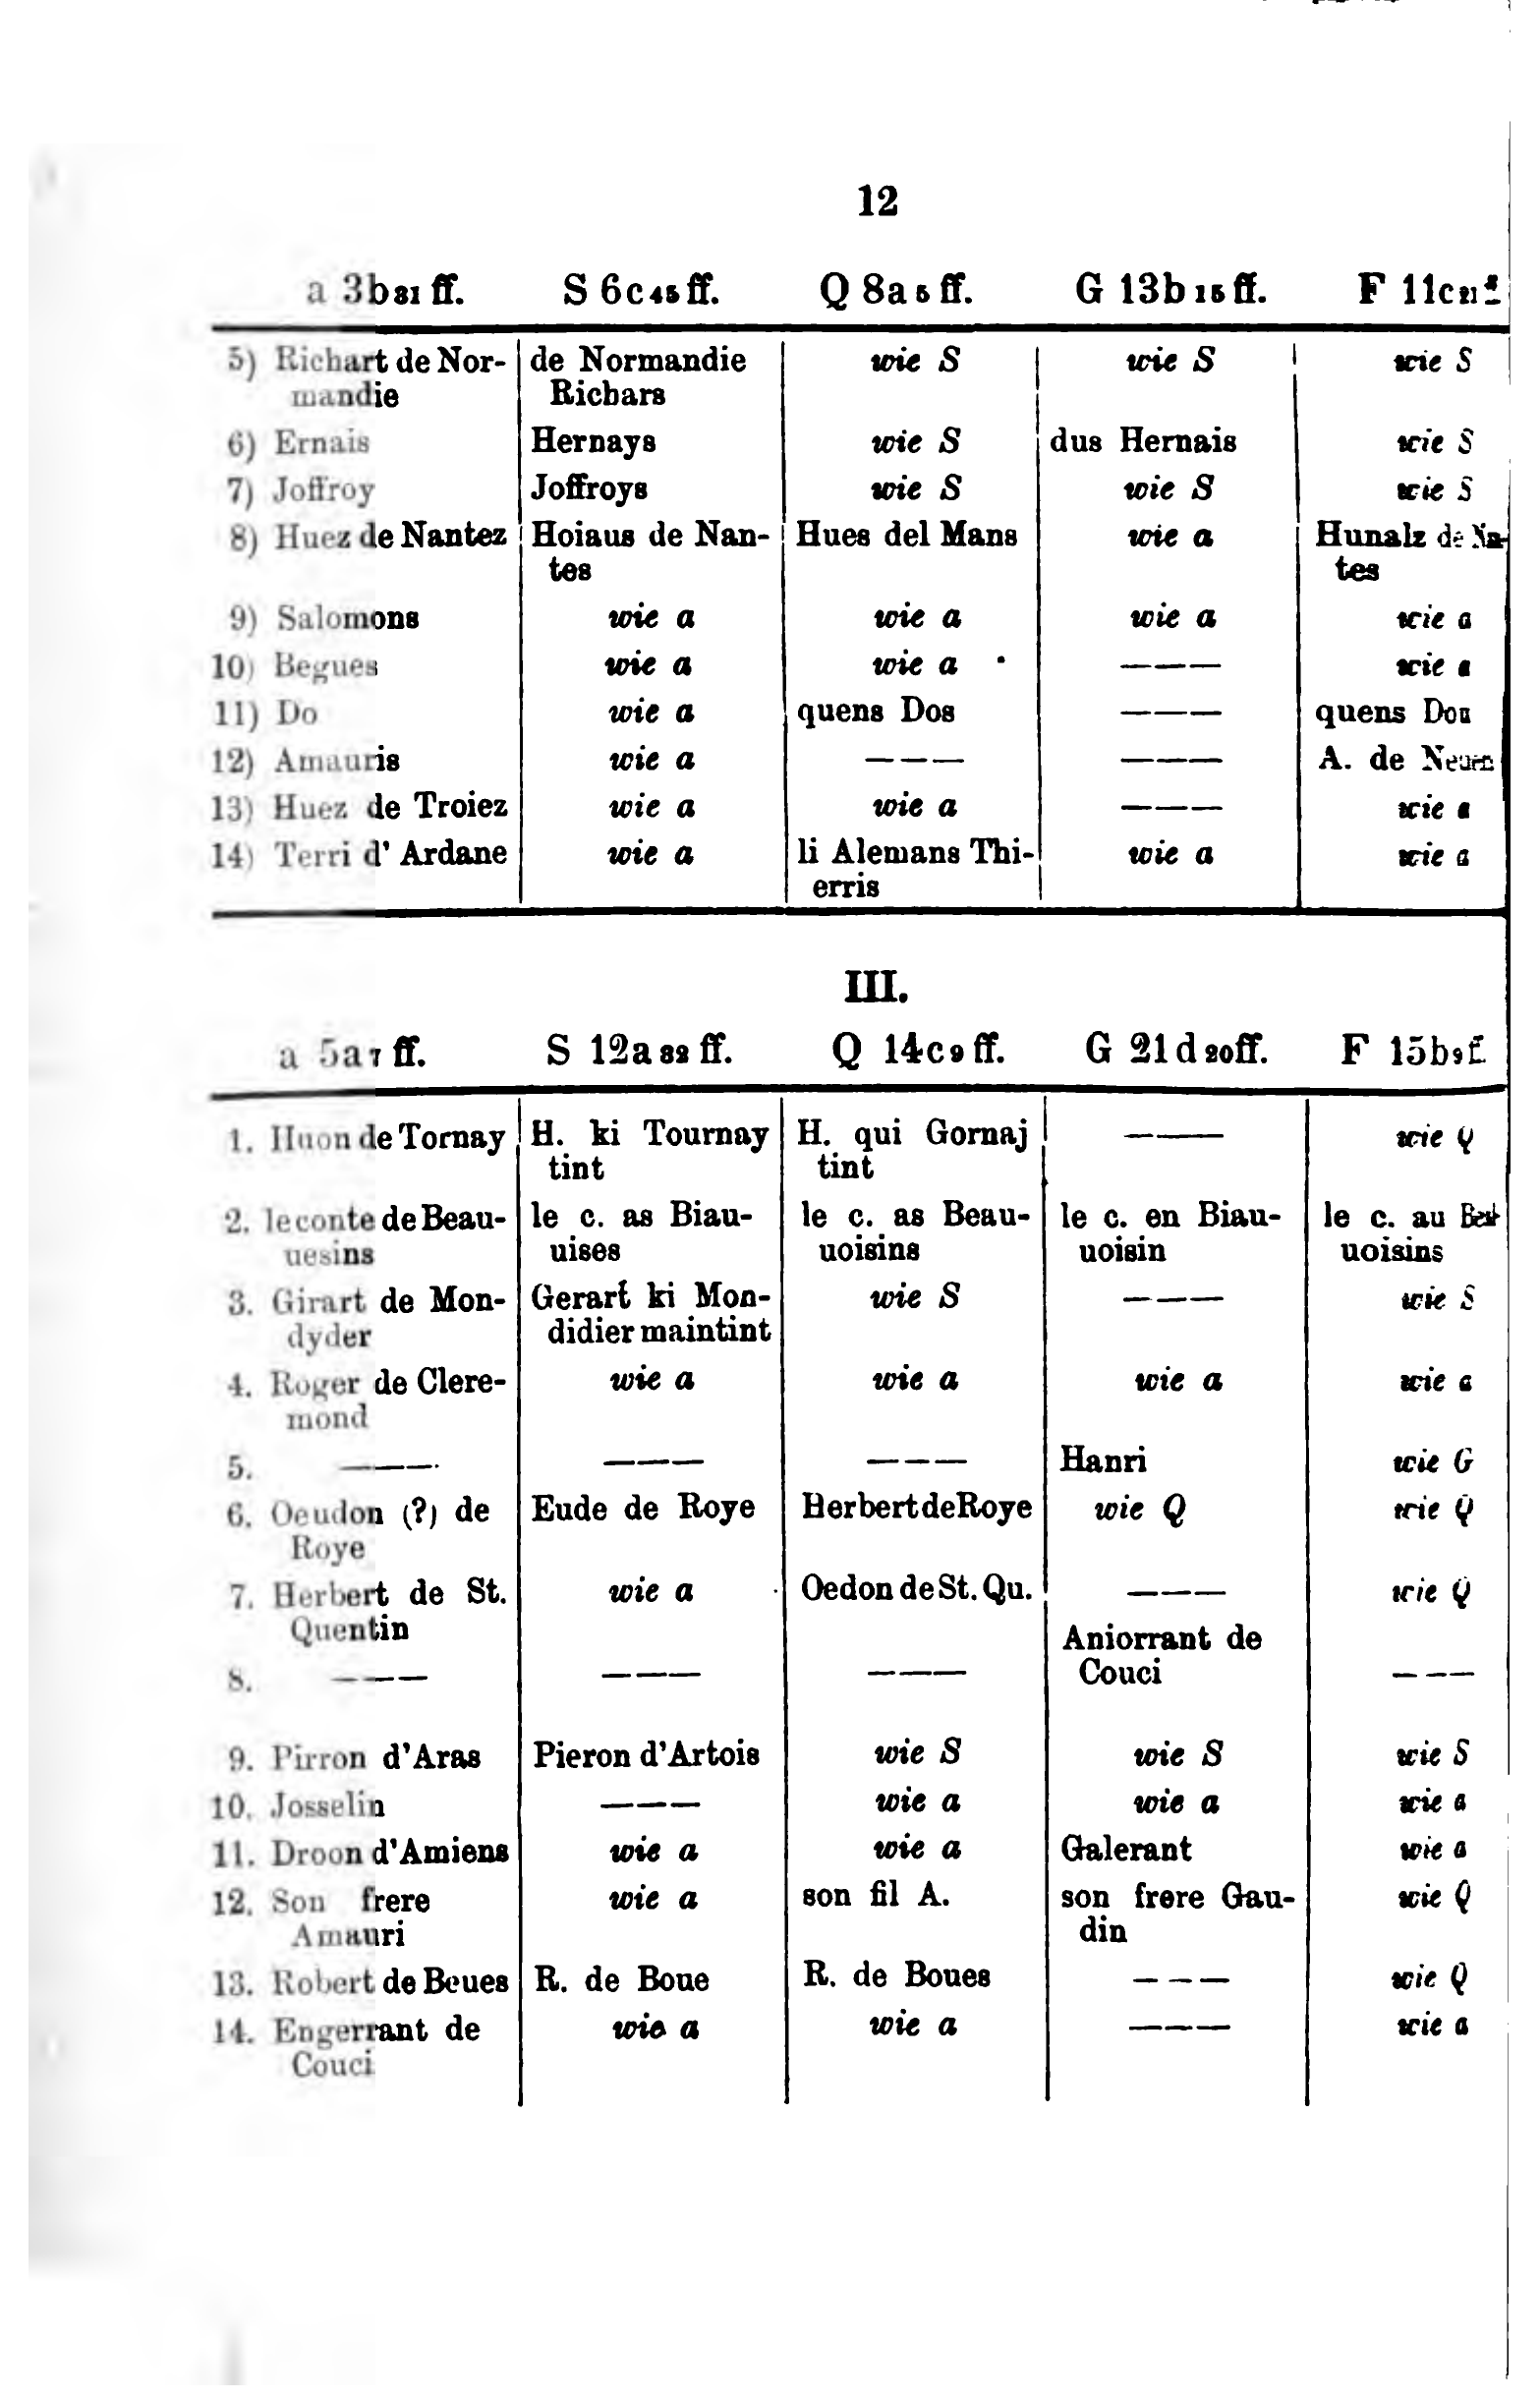 12
a 3b 31 ff. S 6c 45 ff. Q 8a 5 ff. G 13b 15 ff. F 11c 21
5) Richart de Nor- de Normandie wie S wie S wie S
mandie Richars
6) Ernais Hernays wie S dus Hernais wie S
7) Joffroy Joffroys wie S wie S wie S
8) Huez de Nantez Hoiaus de Nan- Hues del Mans wie a Hunalz de Na-
tes tes
9) Salomons wie a wie a wie a wie a
10) Begues wie a wie a — — — wie a
11) Do wie a quens Dos — — — quens Don
12) Amauris wie a — — — — — — A. de
13) Huez de Troiez wie a wie a — — — wie a
14) Terri d' Ardane wie a li Alemans Thi- wie a wie a
erris
III.
a 5a 7 ff. S 12a 32 ff. Q 14c 9 ff. G 21d 20 ff. F 15b 9 f.
1. Huon de Tornay H. ki Tournay H. qui Gornaj — — — wie Q
tint tint
2. le conte de Beau- le c. as Biau- le c. as Beau- le c. en Biau- le c. au Beau-
uesins uises uoisins uoisin uoisins
3. Girart de Mon- Gerart ki Mon- wie S — — — wie S
dyder didier maintint
4. Roger de Clere- wie a wie a wie a wie a
mond
5. — — — — — — — — — Hanri wie G
6. Oeudon (?) de Eude de Roye Herbert de Roye wie Q wie Q
Roye
7. Herbert de St. wie a Oedon de St. Qu. — — — wie Q
Quentin Aniorrant de
8. — — — — — — — — — Couci — — —
9. Pirron d'Aras Pieron d'Artois wie S wie S wie S
10. Josselin — — — wie a wie a wie a
11. Droon d'Amiens wie a wie a Galerant wie a
12. Son frere wie a son fil A. son frere Gau- wie Q
Amauri din
13. Robert de Beues R. de Boue R. de Boues — — — wie Q
14. Engerrant de wie a wie a — — — wie a
Couci